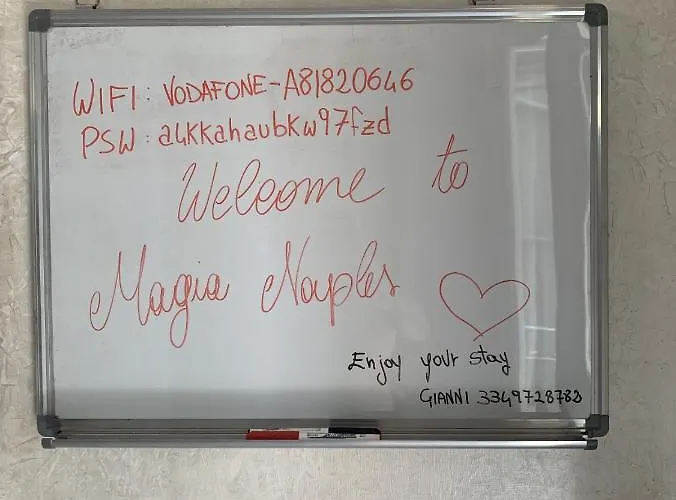 WIFI: VODAFONE-A81820646
PSW: a4kkahaubkw97fzd
Welcome to
Magia Naples
Enjoy your stay
GIANNI 3349728788